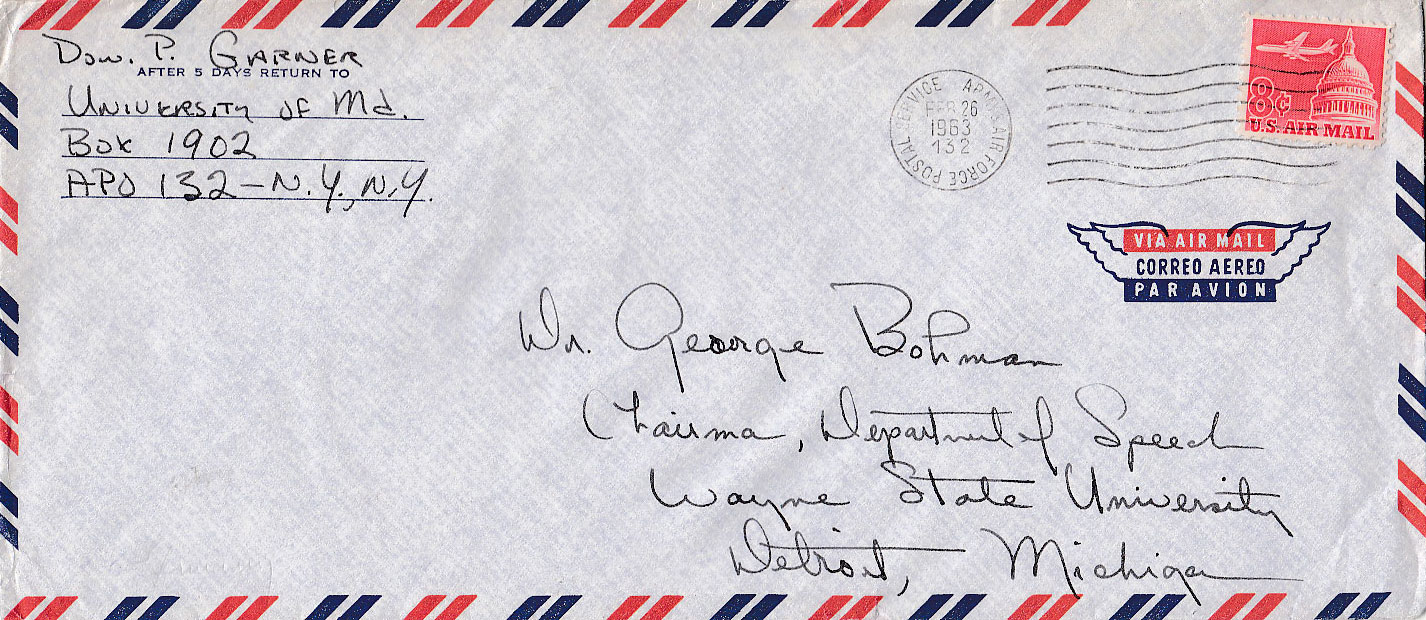 Don. P. Garner
AFTER 5 DAYS RETURN TO
University of Md.
Box 1902
APO 132 - N.Y., N.Y.
ARMY AIR FORCE POSTAL SERVICE
FEB 26
1963
132
8¢
U.S. AIR MAIL
VIA AIR MAIL
CORREO AEREO
PAR AVION
Dr. George Bohman
Chairman, Department of Speech
Wayne State University
Detroit, Michigan